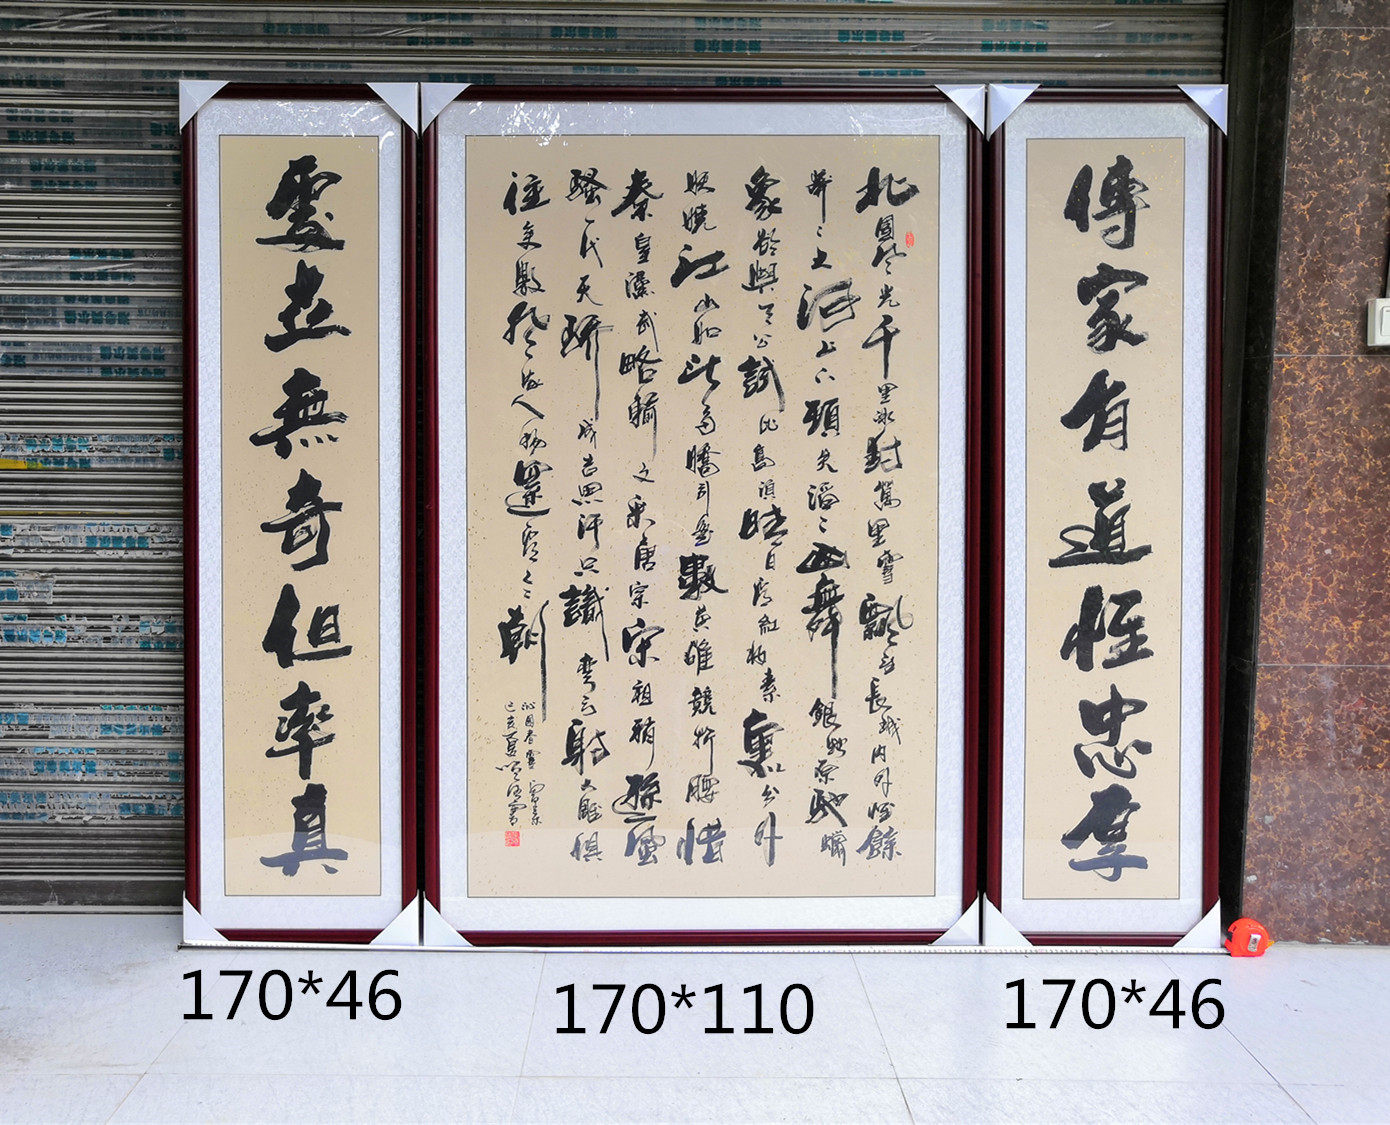 傳家有道惟忠厚
北國風光千里冰封萬里雪飄望長城内外惟餘
莽々大河上下頓失滔々山舞銀蛇原馳蠟
象欲與天公試比高須晴日看紅妝素裹分外
妖嬈江山如此多嬌引無數英雄競折腰惜
秦皇漢武略輸文采唐宗宋祖稍遜風
騷一代天驕成吉思汗只識彎弓射大雕俱
往矣數風流人物還看今朝
沁園春雪
己亥夏
處世無奇但率真
170*46
170*110
170*46